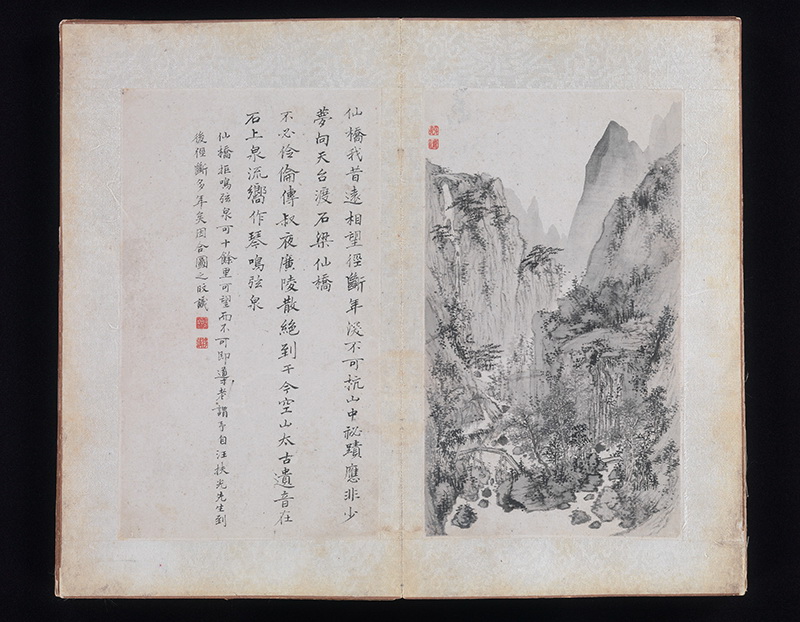 仙橋我昔遠相望徑斷年深不可杭山中祕蹟應非少
夢向天台渡石梁仙橋
不必伶倫傳叔夜廣陵散絶到于今空山太古遺音在
石上泉流嚮作琴鳴弦泉
仙橋距鳴弦泉可十餘里可望而不可即導者謂予自汪扶光先生到
後徑斷多年矣因合圖之旼識